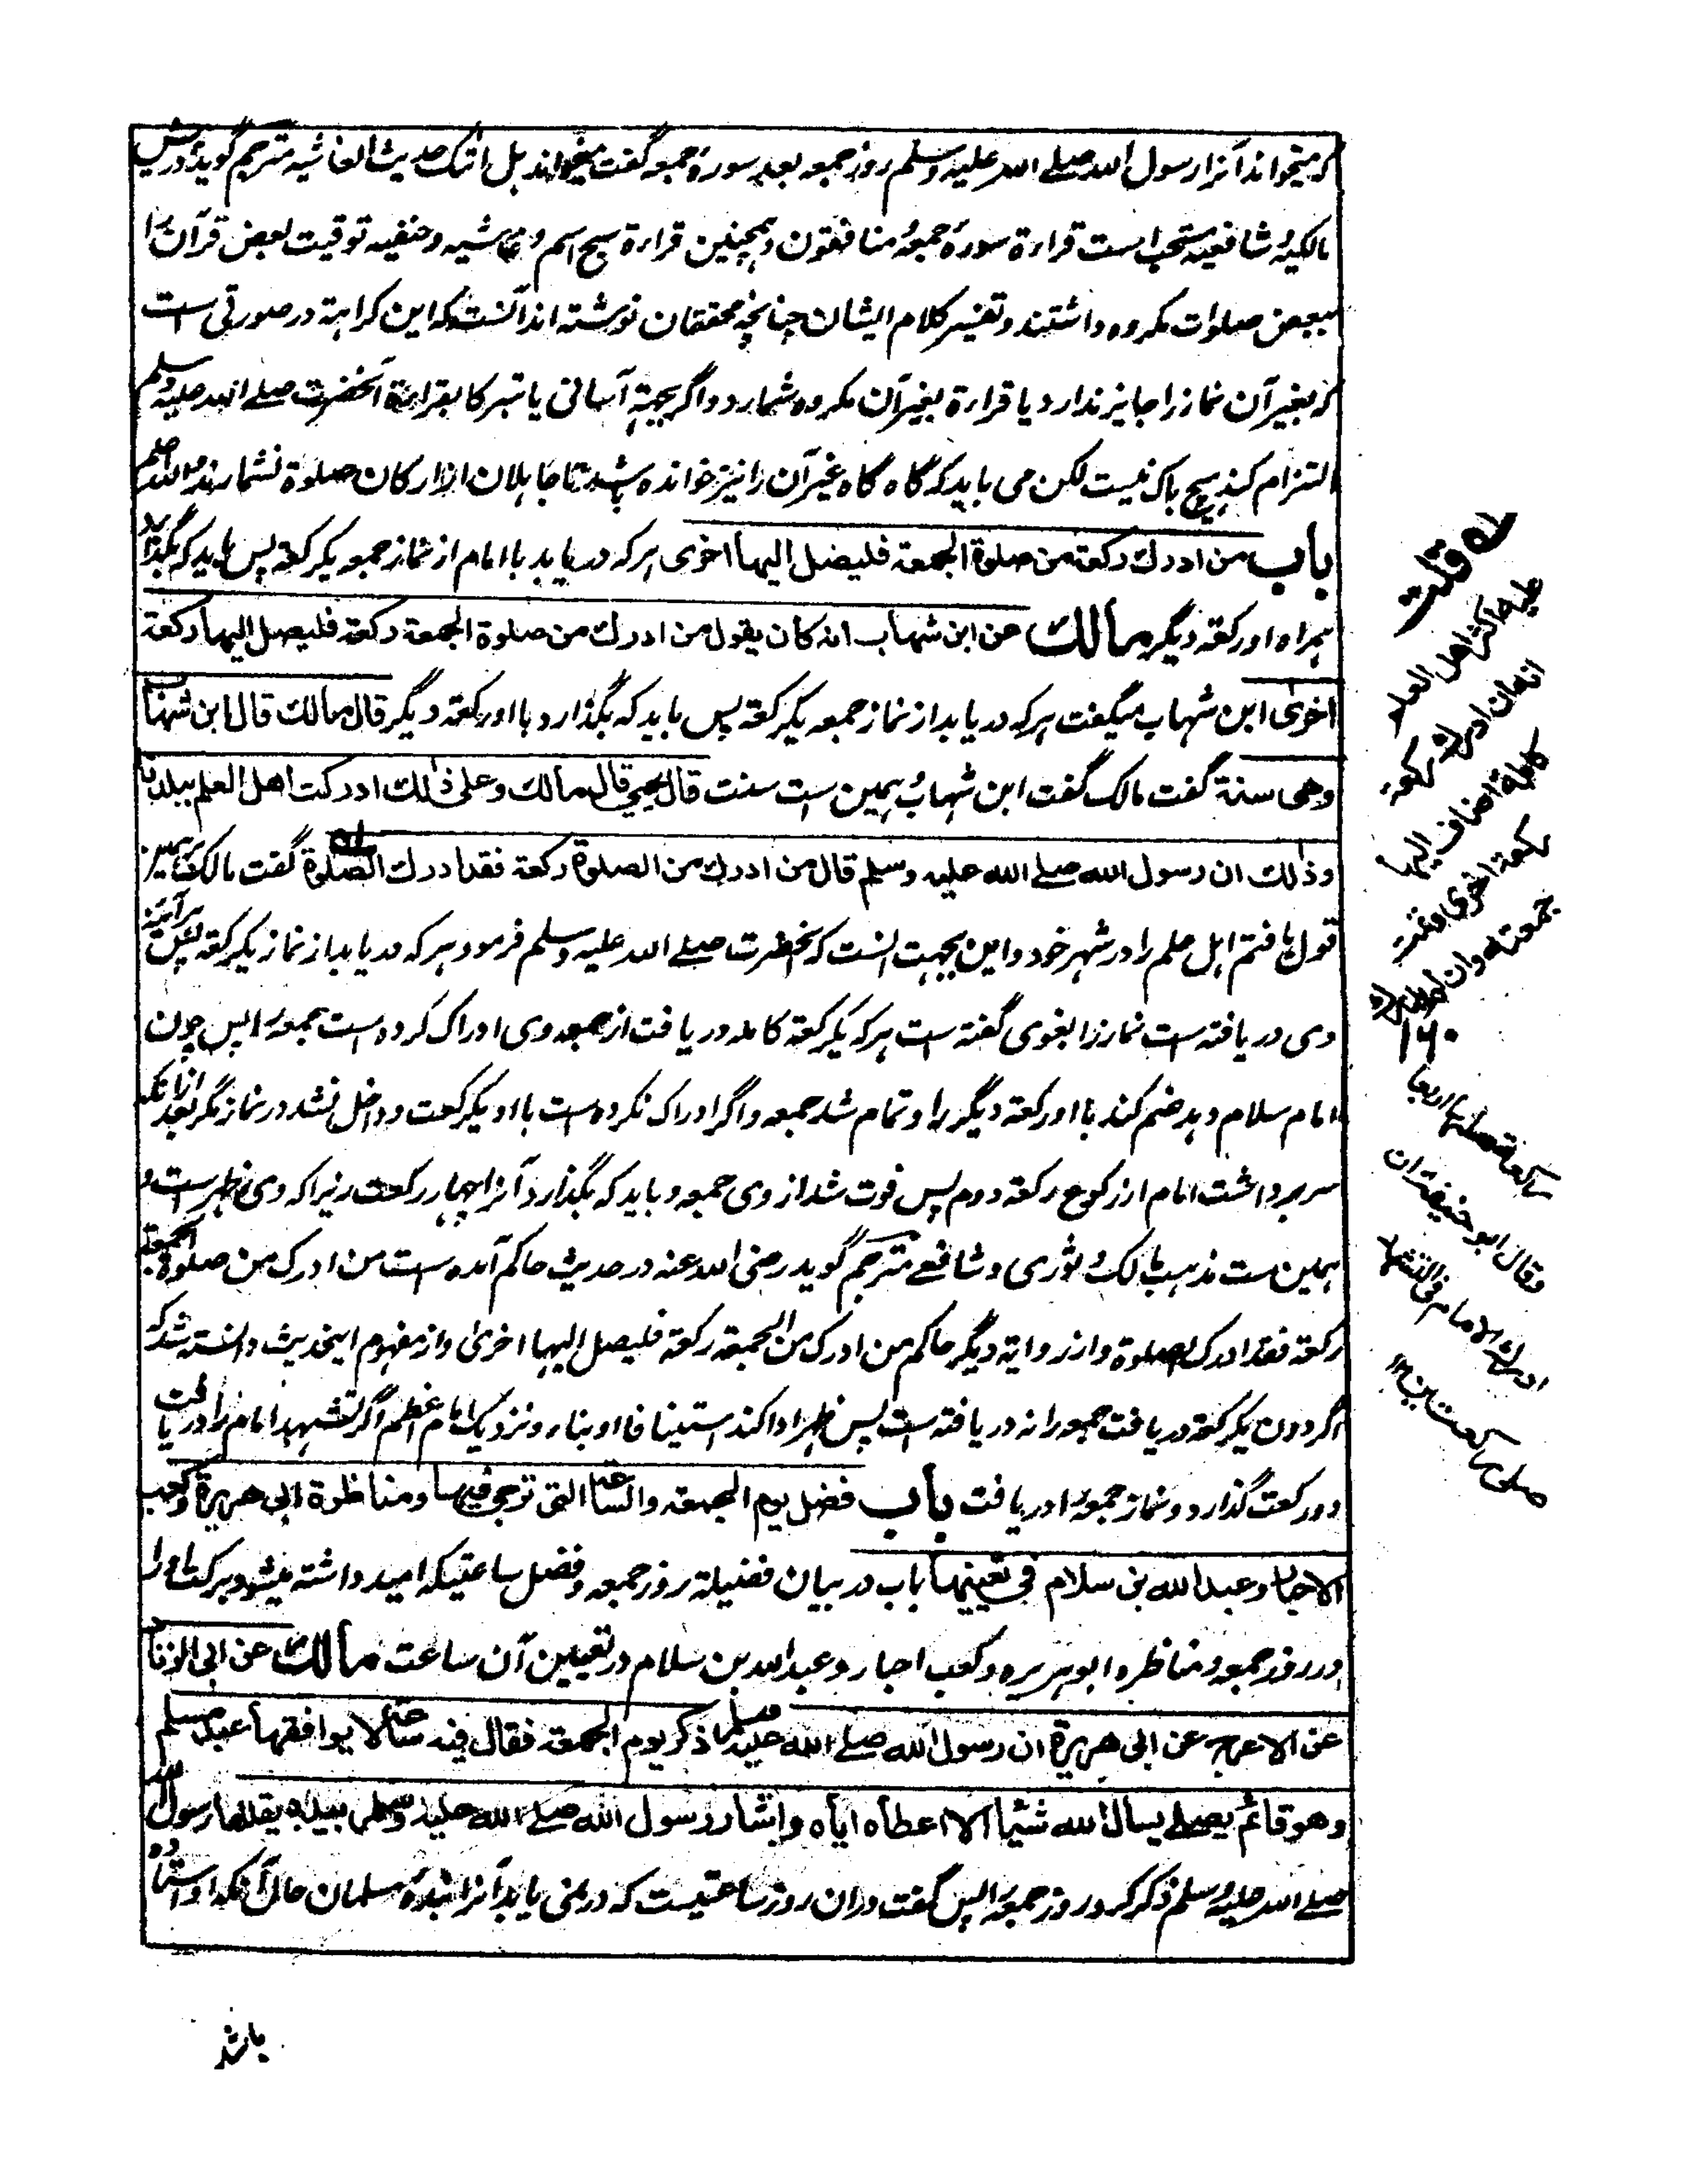 که میخواند آنرا رسول الله صلے الله علیه وسلم روز جمعه بعد سورهٔ جمعه گفت میخواند هل اتٰک حدیث الغاشیه مترجم گوید درین
مالکیه و شافعیه مستحب است قراءة سورهٔ جمعه و منافقون و همچنین قراءة سبح اسم و غاشیه و حنفیه توقیت بعض قرآن را
ببعض صلوات مکروه داشتند و تفسیر کلام ایشان چنانچه محققان نوشته اند آنست که این کراهة در صورتی است
که بغیر آن نماز را جایز ندارد یا قراءة بغیر آن مکروه شمارد و اگر بجهة آسانی یا تبرکا بقراءة آنحضرت صلے الله علیه وسلم
التزام کند هیچ باک نیست لکن می باید که گاه گاه غیر آن را نیز خوانده باشد تا جاهلان از ارکان صلوة نشمارند والله اعلم
باب من ادرك ركعة من صلوة الجمعة فليصل اليها اخرى هر که دریابد با امام از نماز جمعه یکرکعة پس باید که بگذارد
همراه او رکعة دیگر مالك عن ابن شهاب انه كان يقول من ادرك من صلوة الجمعة ركعة فليصل اليها ركعة
اخرى ابن شهاب میگفت هر که دریابد از نماز جمعه یکرکعة پس باید که بگذارد با او رکعة دیگر قال مالك قال ابن شهاب
وهى سنة گفت مالک گفت ابن شهاب و همین است سنت قال يحيى قال مالك وعلى ذلك ادركت اهل العلم ببلدنا
وذلك ان رسول الله صلے الله عليه وسلم قال من ادرك من الصلوة ركعة فقد ادرك الصلوة گفت مالک بر همین
قول یافتم اهل علم را در شهر خود و این بجهت آنست که آنحضرت صلے الله علیه وسلم فرمود هر که دریابد از نماز یکرکعة پس هرآئینه
وی دریافته است نماز را بغوی گفته است هر که یکرکعة کامله دریافت از جمعه وی ادراک کرده است جمعه را پس چون
امام سلام دهد ضم کند با او رکعة دیگر را و تمام شد جمعه و اگر ادراک نکرده است با او یکرکعت و داخل نشد در نماز مگر بعد ازانکه
سر برداشت امام از رکوع رکعة دوم پس فوت شد از وی جمعه و باید که بگذارد آنرا چهار رکعت زیرا که وی ظهر است و
همین ست مذهب مالک و ثوری و شافعے مترجم گوید رضی الله عنه در حدیث حاکم آمده است من ادرک من صلوة الجمعة
رکعة فقد ادرک الصلوة و از روایة دیگر حاکم من ادرک من الجمعة رکعة فلیصل الیها اخری و از مفهوم اینحدیث دانسته شد که
اگر دون یکرکعة دریافت جمعه را نه دریافته است پس ظهر ادا کند استینافا او بناء و نزدیک امام اعظم اگر تشهد امام را دریافت
دو رکعت گذارد و نماز جمعه را دریافت باب فضل يوم الجمعة والساعة التى ترجى فيها ومناظرة ابى هريرة وكعب
الاحبار وعبد الله بن سلام فى تعيينها باب در بیان فضیلة روز جمعه و فضل ساعتیکه امید داشته میشود
در روز جمعه و مناظره ابو هریره و کعب احبار و عبد الله بن سلام در تعیین آن ساعت مالك عن ابى الزناد
عن الاعرج عن ابى هريرة ان رسول الله صلے الله عليه وسلم ذكر يوم الجمعة فقال فيه ساعة لا يوافقها عبد مسلم
وهو قائم يصلے يسأل الله شيئا الا اعطاه اياه واشار رسول الله صلے الله عليه وسلم بيده يقللها رسول الله
صلے الله علیه وسلم ذکر کرد روز جمعه را پس گفت دران روز ساعتیست که در نمی یابد آنرا بندهٔ مسلمان حال آنکه او استاده
باشد
له قلت
عليه اكثر اهل العلم
انه ان ادرك ركعة
كاملة اضاف اليها
ركعة اخرى وتمت
جمعته وان لم يدرك
۱۶۰
ركعة صلاها اربعا
وقال ابو حنيفة ان
ادرك الامام فى التشهد
صلى ركعتين ۱۲